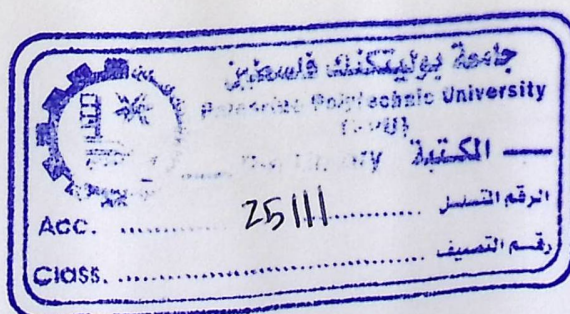 جامعة بوليتكنك فلسطين
Palestine Polytechnic University
(PPU)
المكتبة The Library
Acc. .......... 25111 .......... الرقم التسلسل
Class. .......... رقم التصنيف